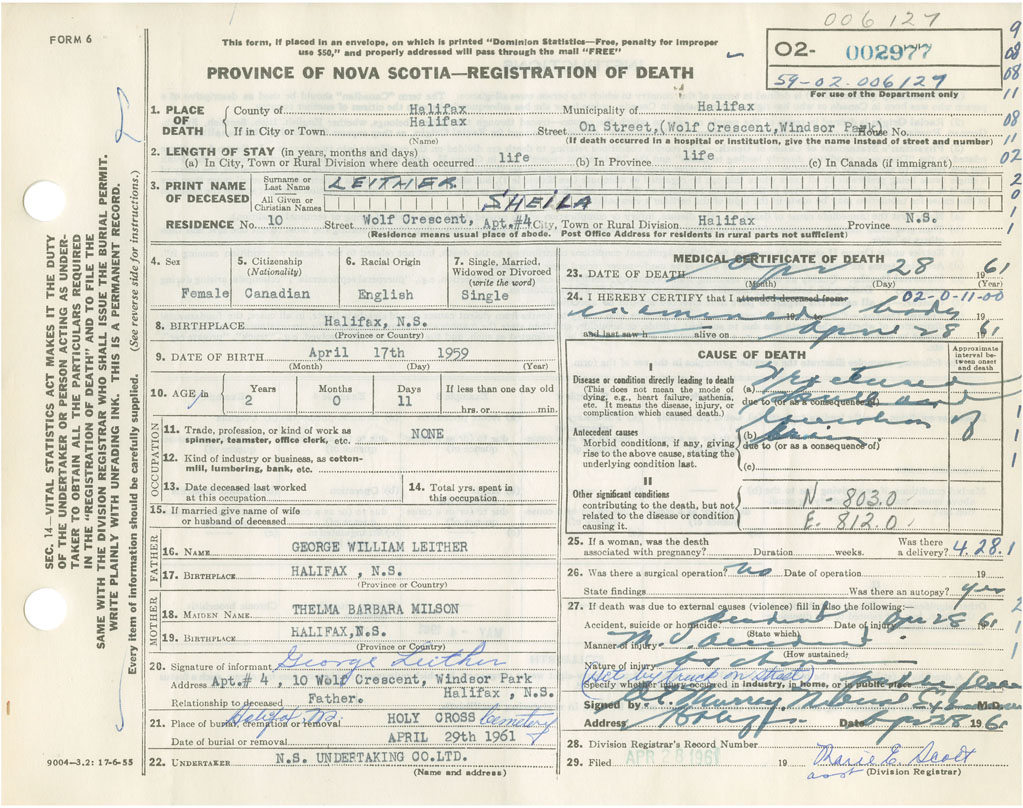 006127
FORM 6
This form, if placed in an envelope, on which is printed "Dominion Statistics—Free, penalty for improper
use $50," and properly addressed will pass through the mail "FREE"
PROVINCE OF NOVA SCOTIA—REGISTRATION OF DEATH
02- 002977
59-02-006127
For use of the Department only
1. PLACE OF DEATH
County of Halifax Municipality of Halifax
If in City or Town Halifax Street On Street,(Wolf Crescent,Windsor Park) House No.
(Name) (If death occurred in a hospital or institution, give the name instead of street and number)
2. LENGTH OF STAY (in years, months and days)
(a) In City, Town or Rural Division where death occurred life (b) In Province life (c) In Canada (if immigrant)
3. PRINT NAME OF DECEASED
Surname or Last Name LEITHER
All Given or Christian Names SHEILA
RESIDENCE No. 10 Street Wolf Crescent, Apt.#4 City, Town or Rural Division Halifax Province N.S.
(Residence means usual place of abode. Post Office Address for residents in rural parts not sufficient)
4. Sex Female
5. Citizenship (Nationality) Canadian
6. Racial Origin English
7. Single, Married, Widowed or Divorced (write the word) Single
8. BIRTHPLACE Halifax, N.S.
(Province or Country)
9. DATE OF BIRTH April 17th 1959
(Month) (Day) (Year)
10. AGE in Years 2 Months 0 Days 11 If less than one day old hrs. or min.
OCCUPATION
11. Trade, profession, or kind of work as spinner, teamster, office clerk, etc. NONE
12. Kind of industry or business, as cotton-mill, lumbering, bank, etc.
13. Date deceased last worked at this occupation
14. Total yrs. spent in this occupation
15. If married give name of wife or husband of deceased
FATHER
16. NAME GEORGE WILLIAM LEITHER
17. BIRTHPLACE HALIFAX , N.S.
(Province or Country)
MOTHER
18. MAIDEN NAME THELMA BARBARA MILSON
19. BIRTHPLACE HALIFAX,N.S.
(Province or Country)
20. Signature of informant George Leither
Address Apt.# 4 , 10 Wolf Crescent, Windsor Park
Halifax , N.S.
Relationship to deceased Father.
21. Place of burial, cremation or removal Halifax HOLY CROSS Cemetery
Date of burial or removal APRIL 29th 1961
22. UNDERTAKER N.S. UNDERTAKING CO.LTD.
(Name and address)
9004-3.2: 17-6-55
SEC. 14—VITAL STATISTICS ACT MAKES IT THE DUTY
OF THE UNDERTAKER OR PERSON ACTING AS UNDER-
TAKER TO OBTAIN ALL THE PARTICULARS REQUIRED
IN THE "REGISTRATION OF DEATH" AND TO FILE THE
SAME WITH THE DIVISION REGISTRAR WHO SHALL ISSUE THE BURIAL PERMIT.
WRITE PLAINLY WITH UNFADING INK. THIS IS A PERMANENT RECORD.
Every item of information should be carefully supplied. (See reverse side for instructions.)
MEDICAL CERTIFICATE OF DEATH
23. DATE OF DEATH Apr 28 1961
(Month) (Day) (Year)
24. I HEREBY CERTIFY that I attended deceased from 02-0-11-00
examined 19 to body
and last saw h alive on April 28 61
CAUSE OF DEATH
Approximate interval between onset and death
I
Disease or condition directly leading to death
(This does not mean the mode of dying, e.g., heart failure, asthenia, etc. It means the disease, injury, or complication which caused death.)
(a) Fractured skull and
due to (or as a consequence of)
Antecedent causes
Morbid conditions, if any, giving rise to the above cause, stating the underlying condition last.
laceration of
(b) brain
due to (or as a consequence of)
(c)
II
Other significant conditions
contributing to the death, but not related to the disease or condition causing it.
N - 803.0
E. 812.0
25. If a woman, was the death associated with pregnancy? Duration weeks. Was there a delivery? 4.28.1
26. Was there a surgical operation? no Date of operation 19
State findings Was there an autopsy? yes
27. If death was due to external causes (violence) fill in also the following:—
Accident, suicide or homicide? Accident Date of injury Apr 28 1961
(State which)
Manner of injury M. V. Accident
(How sustained)
Nature of injury As above
(Hit by truck on street)
Specify whether injury occurred in industry, in home, or in public place public place
Signed by Murray M.D.
Address Halifax Date Apr 28 1961
28. Division Registrar's Record Number
29. Filed APR 28 1961 19 Marie E. Scott
asst (Division Registrar)